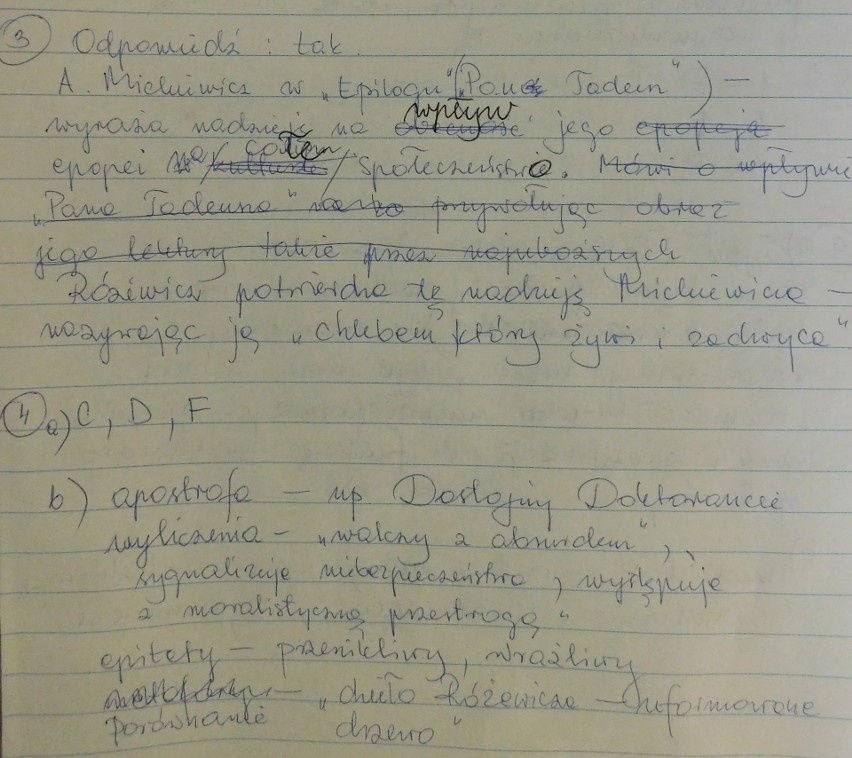 3 Odpowiedź : tak.
A. Mickiewicz w „Epilogu" („Pana Tadeusza") –
wyraża nadzieję na obecność wpływ jego epopeja
epopei na kulturę całe społeczeństwo. Mówi o wpływie
„Pana Tadeusza" przywołując obraz
jego lektury także przez najuboższych
Różewicz potwierdza tę nadzieję Mickiewicza –
nazywając ją „chlebem który żywi i zachwyca"
4 a) C, D, F
b) apostrofa – np Dostojny Doktorancie
wyliczenia – „walczy z absurdem",
sygnalizuje niebezpieczeństwo, występuje
z moralistyczną przestrogą"
epitety – przenikliwy, wrażliwy
porównanie – „dzieło Różewicza – uformowane
drzewo"